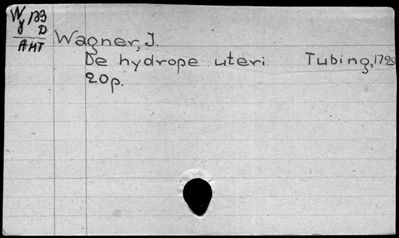 W 133
y D
AHT
Wagner, J.
De hydrope uteri Tubing, 1729
20p.